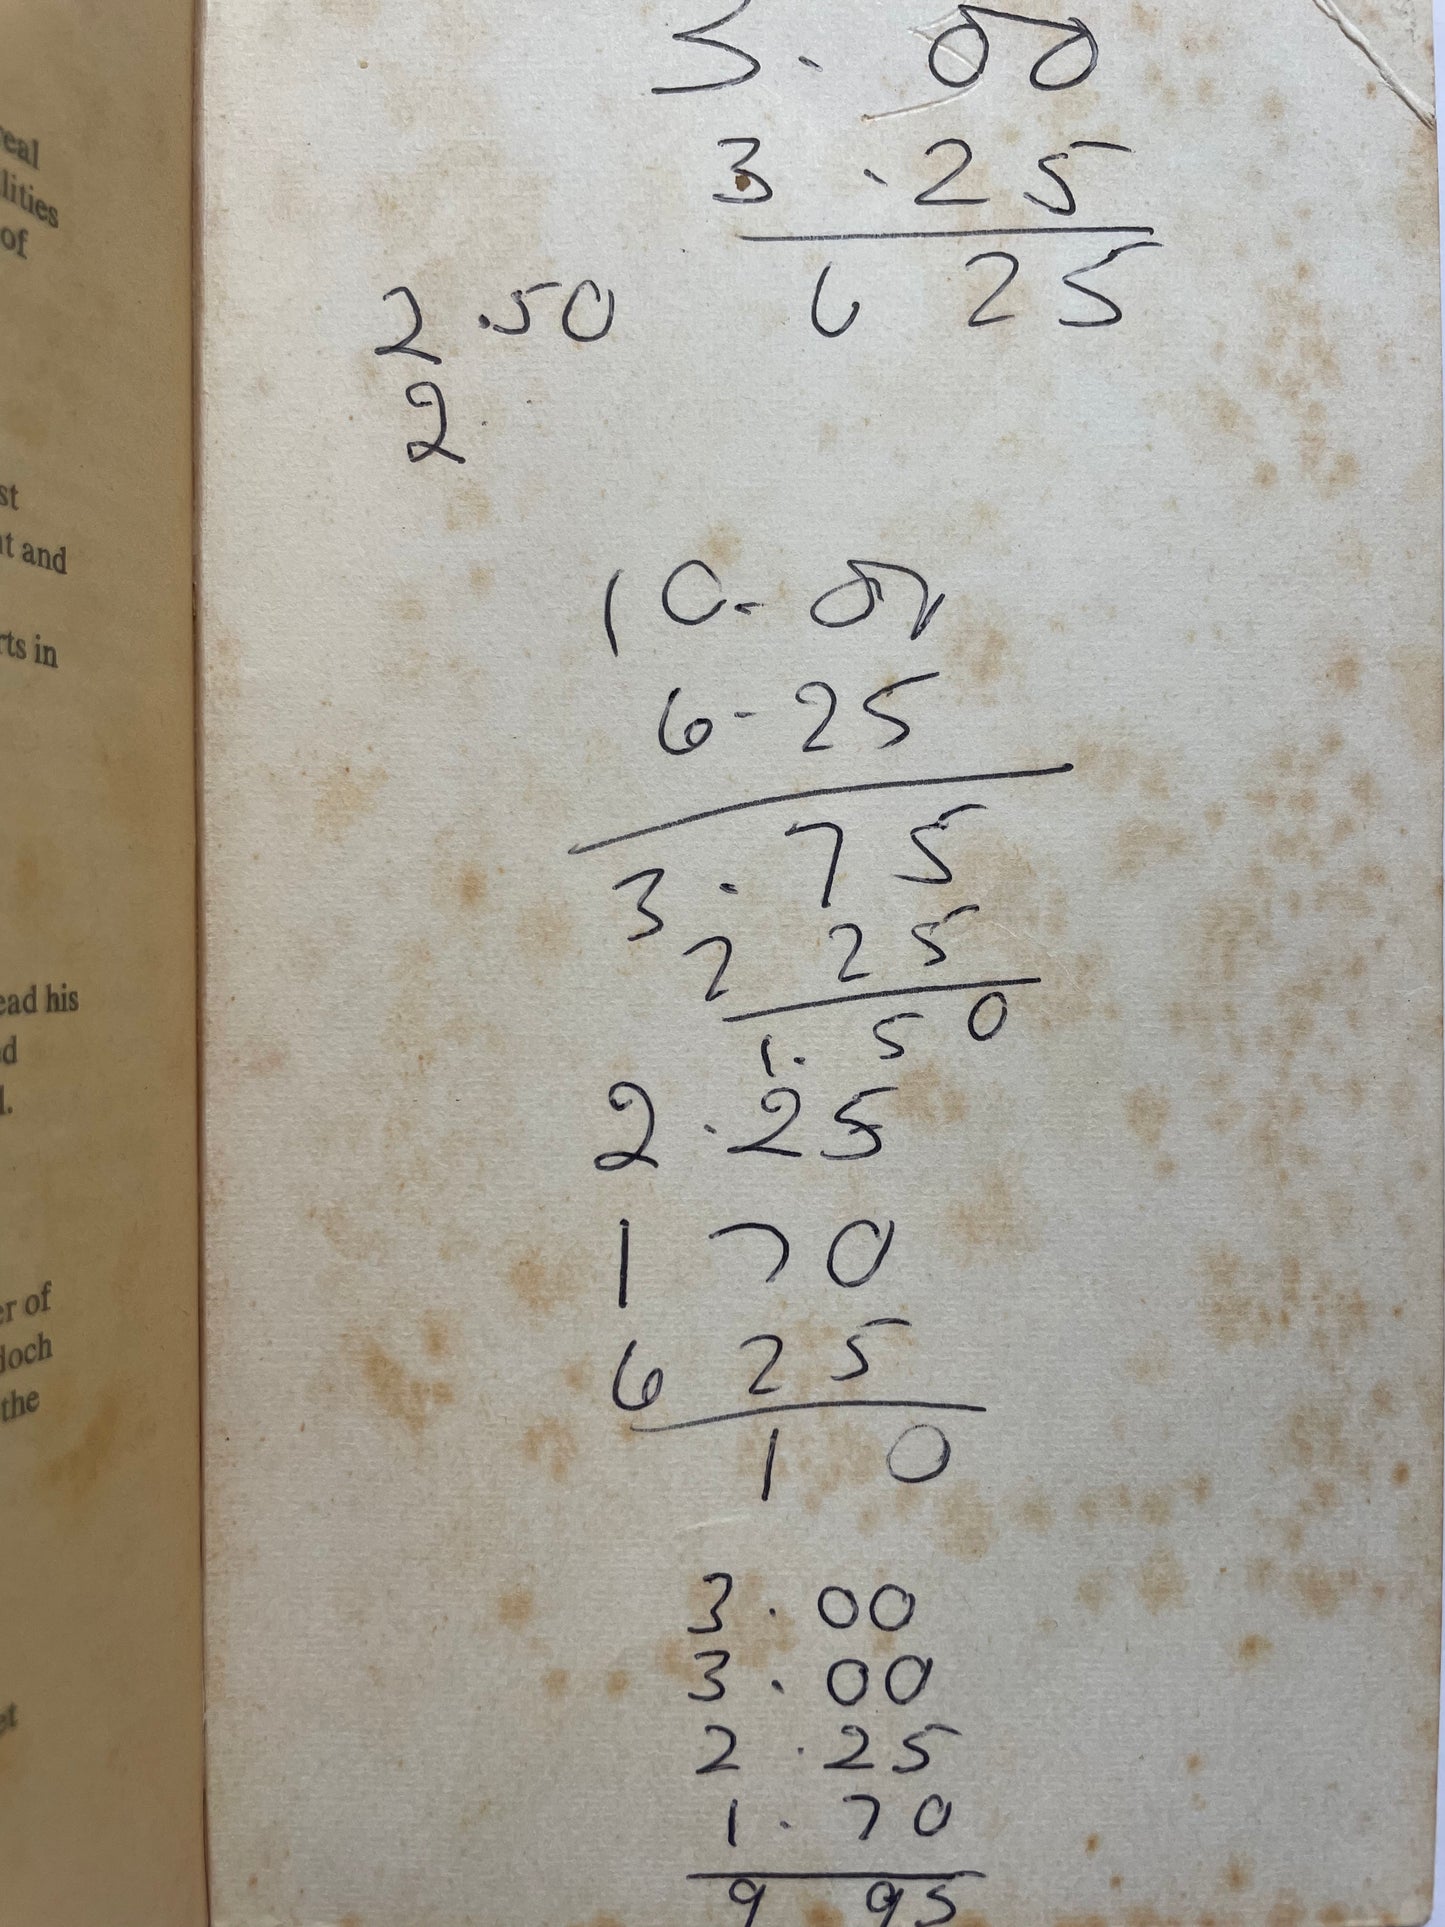 3. 00
3 .25
6 25
2 .50
2.
10. 00
6.25
3.75
2 25
1. 50
2.25
1 70
6 25
1 0
3.00
3.00
2.25
1.70
9 95
eal
lities
of
st
t and
rts in
ead his
d
l.
er of
doch
the
et